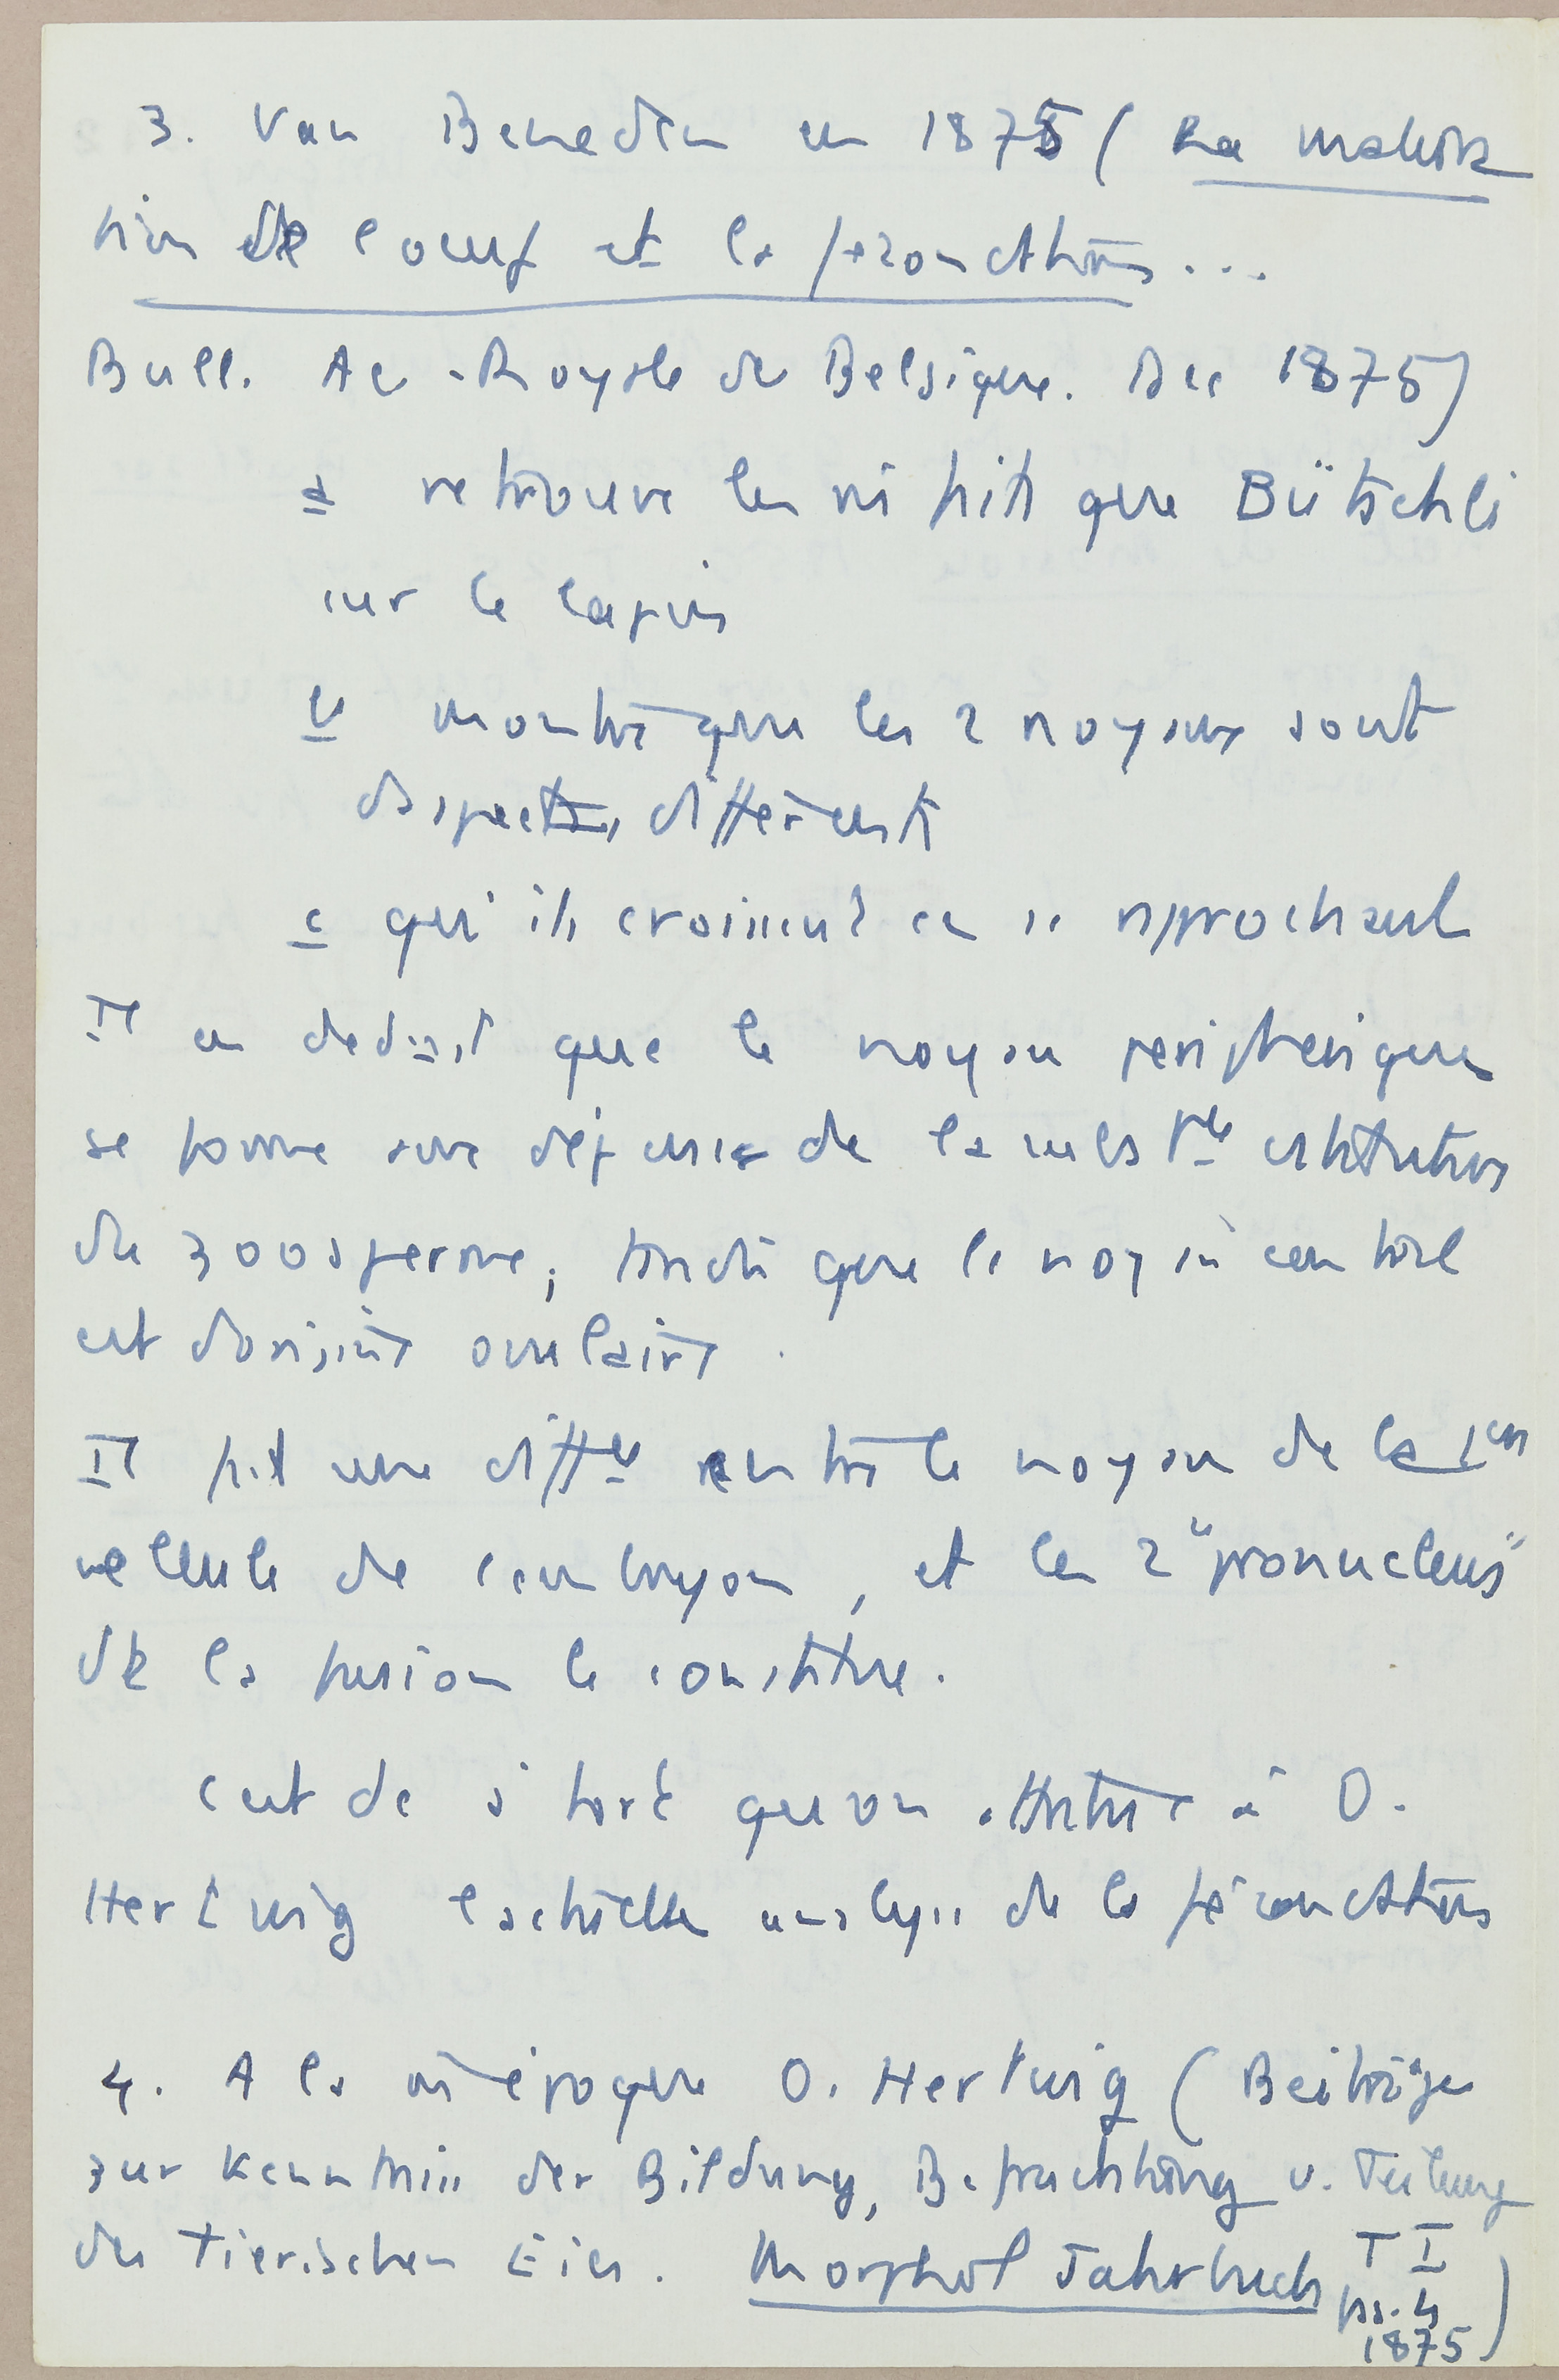 3. Van Beneden en 1875 ( La matura
tion de l'oeuf et la fécondation...
Bull. Ac. Royale de Belgique. Dec 1875)
a retrouve les m̂ faits que Bütschli
sur le lapin
b montre que les 2 noyaux sont
d'aspects différents
c qu'ils croissent en se rapprochant
Il en déduit que le noyau périphérique
se forme aux dépens de la subs
du zoosperme, tandis que le noyau central
est d'origine ovulaire.
Il fait une diffce entre le noyau de la 1ere
cellule de l'embryon, et les 2 "pronucleus"
dt la fusion le constitue.
C'est dc à tort qu'on attribue à O.
Hertwig l'actuelle analyse de la fécondation
4. A la m̂ époque O. Hertwig (Beiträge
zur Kenntniss der Bildung, Befruchtung u. Teilung
des tierischen Eies. Morphol Jahrbuch T I
1875)